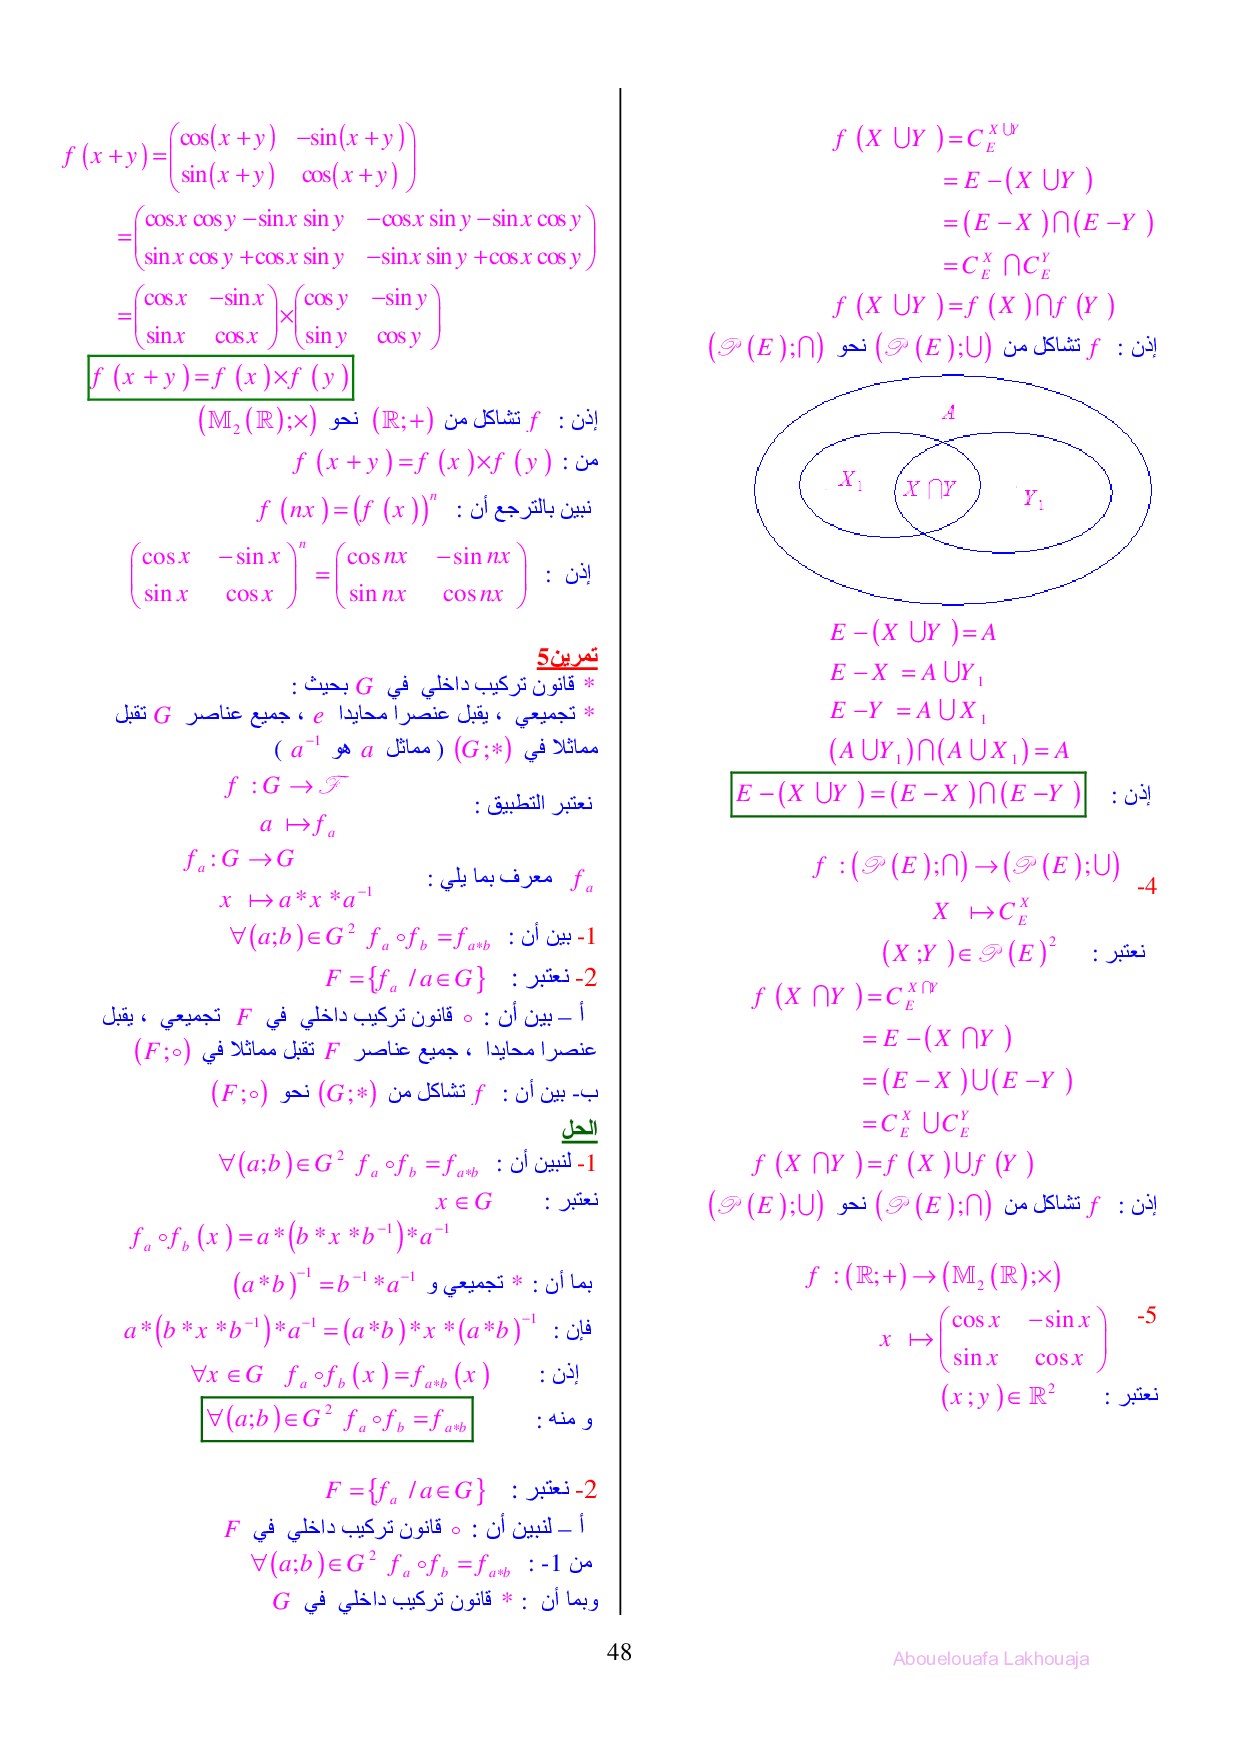 f (X ∪ Y) = C_E^{X∪Y}
= E − (X ∪ Y)
= (E − X) ∩ (E − Y)
= C_E^X ∩ C_E^Y
f (X ∪ Y) = f (X) ∩ f (Y)
إذن : f تشاكل من (𝒫(E);∪) نحو (𝒫(E);∩)
A
X₁ X ∩ Y Y₁
E − (X ∪ Y) = A
E − X = A ∪ Y₁
E − Y = A ∪ X₁
(A ∪ Y₁) ∩ (A ∪ X₁) = A
إذن : E − (X ∪ Y) = (E − X) ∩ (E − Y)
-4 f : (𝒫(E);∩) → (𝒫(E);∪)
X ↦ C_E^X
نعتبر : (X ; Y) ∈ 𝒫(E)²
f (X ∩ Y) = C_E^{X∩Y}
= E − (X ∩ Y)
= (E − X) ∪ (E − Y)
= C_E^X ∪ C_E^Y
f (X ∩ Y) = f (X) ∪ f (Y)
إذن : f تشاكل من (𝒫(E);∩) نحو (𝒫(E);∪)
f : (ℝ;+) → (𝕄₂(ℝ);×)
-5 x ↦ (cos x −sin x
sin x cos x)
نعتبر : (x ; y) ∈ ℝ²
f (x + y) = (cos(x + y) −sin(x + y)
sin(x + y) cos(x + y))
= (cos x cos y − sin x sin y −cos x sin y − sin x cos y
sin x cos y + cos x sin y −sin x sin y + cos x cos y)
= (cos x −sin x × (cos y −sin y
sin x cos x) sin y cos y)
f (x + y) = f (x) × f (y)
إذن : f تشاكل من (ℝ;+) نحو (𝕄₂(ℝ);×)
من : f (x + y) = f (x) × f (y)
نبين بالترجع أن : f (nx) = (f (x))ⁿ
إذن : (cos x −sin x)ⁿ = (cos nx −sin nx
sin x cos x sin nx cos nx)
تمرين5
* قانون تركيب داخلي في G بحيث :
* تجميعي ، يقبل عنصرا محايدا e ، جميع عناصر G تقبل
مماثلا في (G;*) ( مماثل a هو a⁻¹ )
نعتبر التطبيق : f : G → ℱ
a ↦ f_a
f_a معرف بما يلي : f_a : G → G
x ↦ a * x * a⁻¹
1- بين أن : ∀(a;b) ∈ G² f_a ∘ f_b = f_{a*b}
2- نعتبر : F = {f_a / a ∈ G}
أ – بين أن : ∘ قانون تركيب داخلي في F تجميعي ، يقبل
عنصرا محايدا ، جميع عناصر F تقبل مماثلا في (F;∘)
ب- بين أن : f تشاكل من (G;*) نحو (F;∘)
الحل
1- لنبين أن : ∀(a;b) ∈ G² f_a ∘ f_b = f_{a*b}
نعتبر : x ∈ G
f_a ∘ f_b (x) = a * (b * x * b⁻¹) * a⁻¹
بما أن : * تجميعي و (a * b)⁻¹ = b⁻¹ * a⁻¹
فإن : a * (b * x * b⁻¹) * a⁻¹ = (a * b) * x * (a * b)⁻¹
إذن : ∀x ∈ G f_a ∘ f_b (x) = f_{a*b} (x)
و منه : ∀(a;b) ∈ G² f_a ∘ f_b = f_{a*b}
2- نعتبر : F = {f_a / a ∈ G}
أ – لنبين أن : ∘ قانون تركيب داخلي في F
من 1- : ∀(a;b) ∈ G² f_a ∘ f_b = f_{a*b}
وبما أن : * قانون تركيب داخلي في G
48
Abouelouafa Lakhouaja